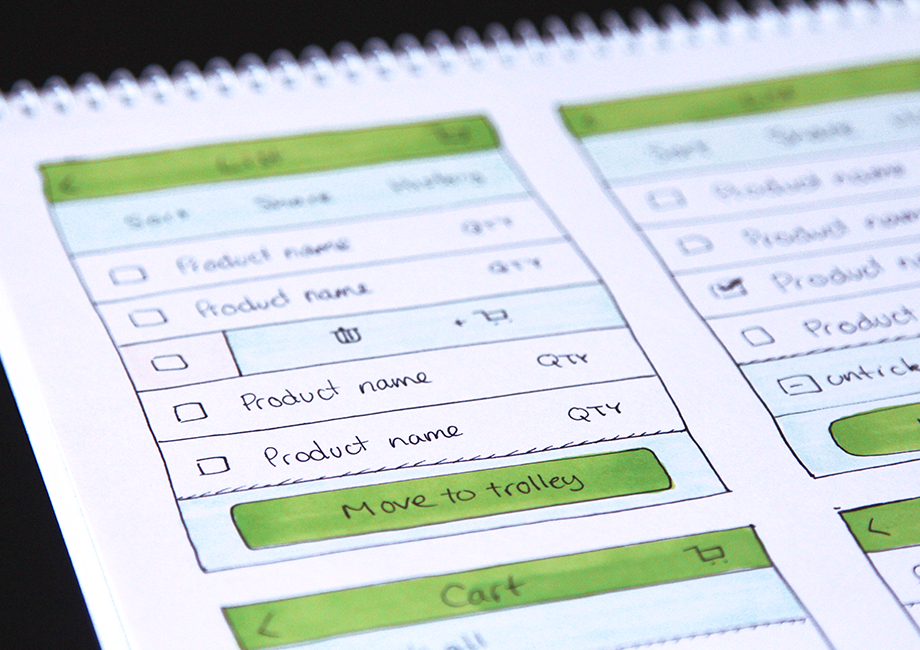 List
Sort Share History
Product name QTY
Product name QTY
+
Product name QTY
Product name QTY
Move to trolley
Cart
Sort Share
Product name
Product name
Product
Product
untick